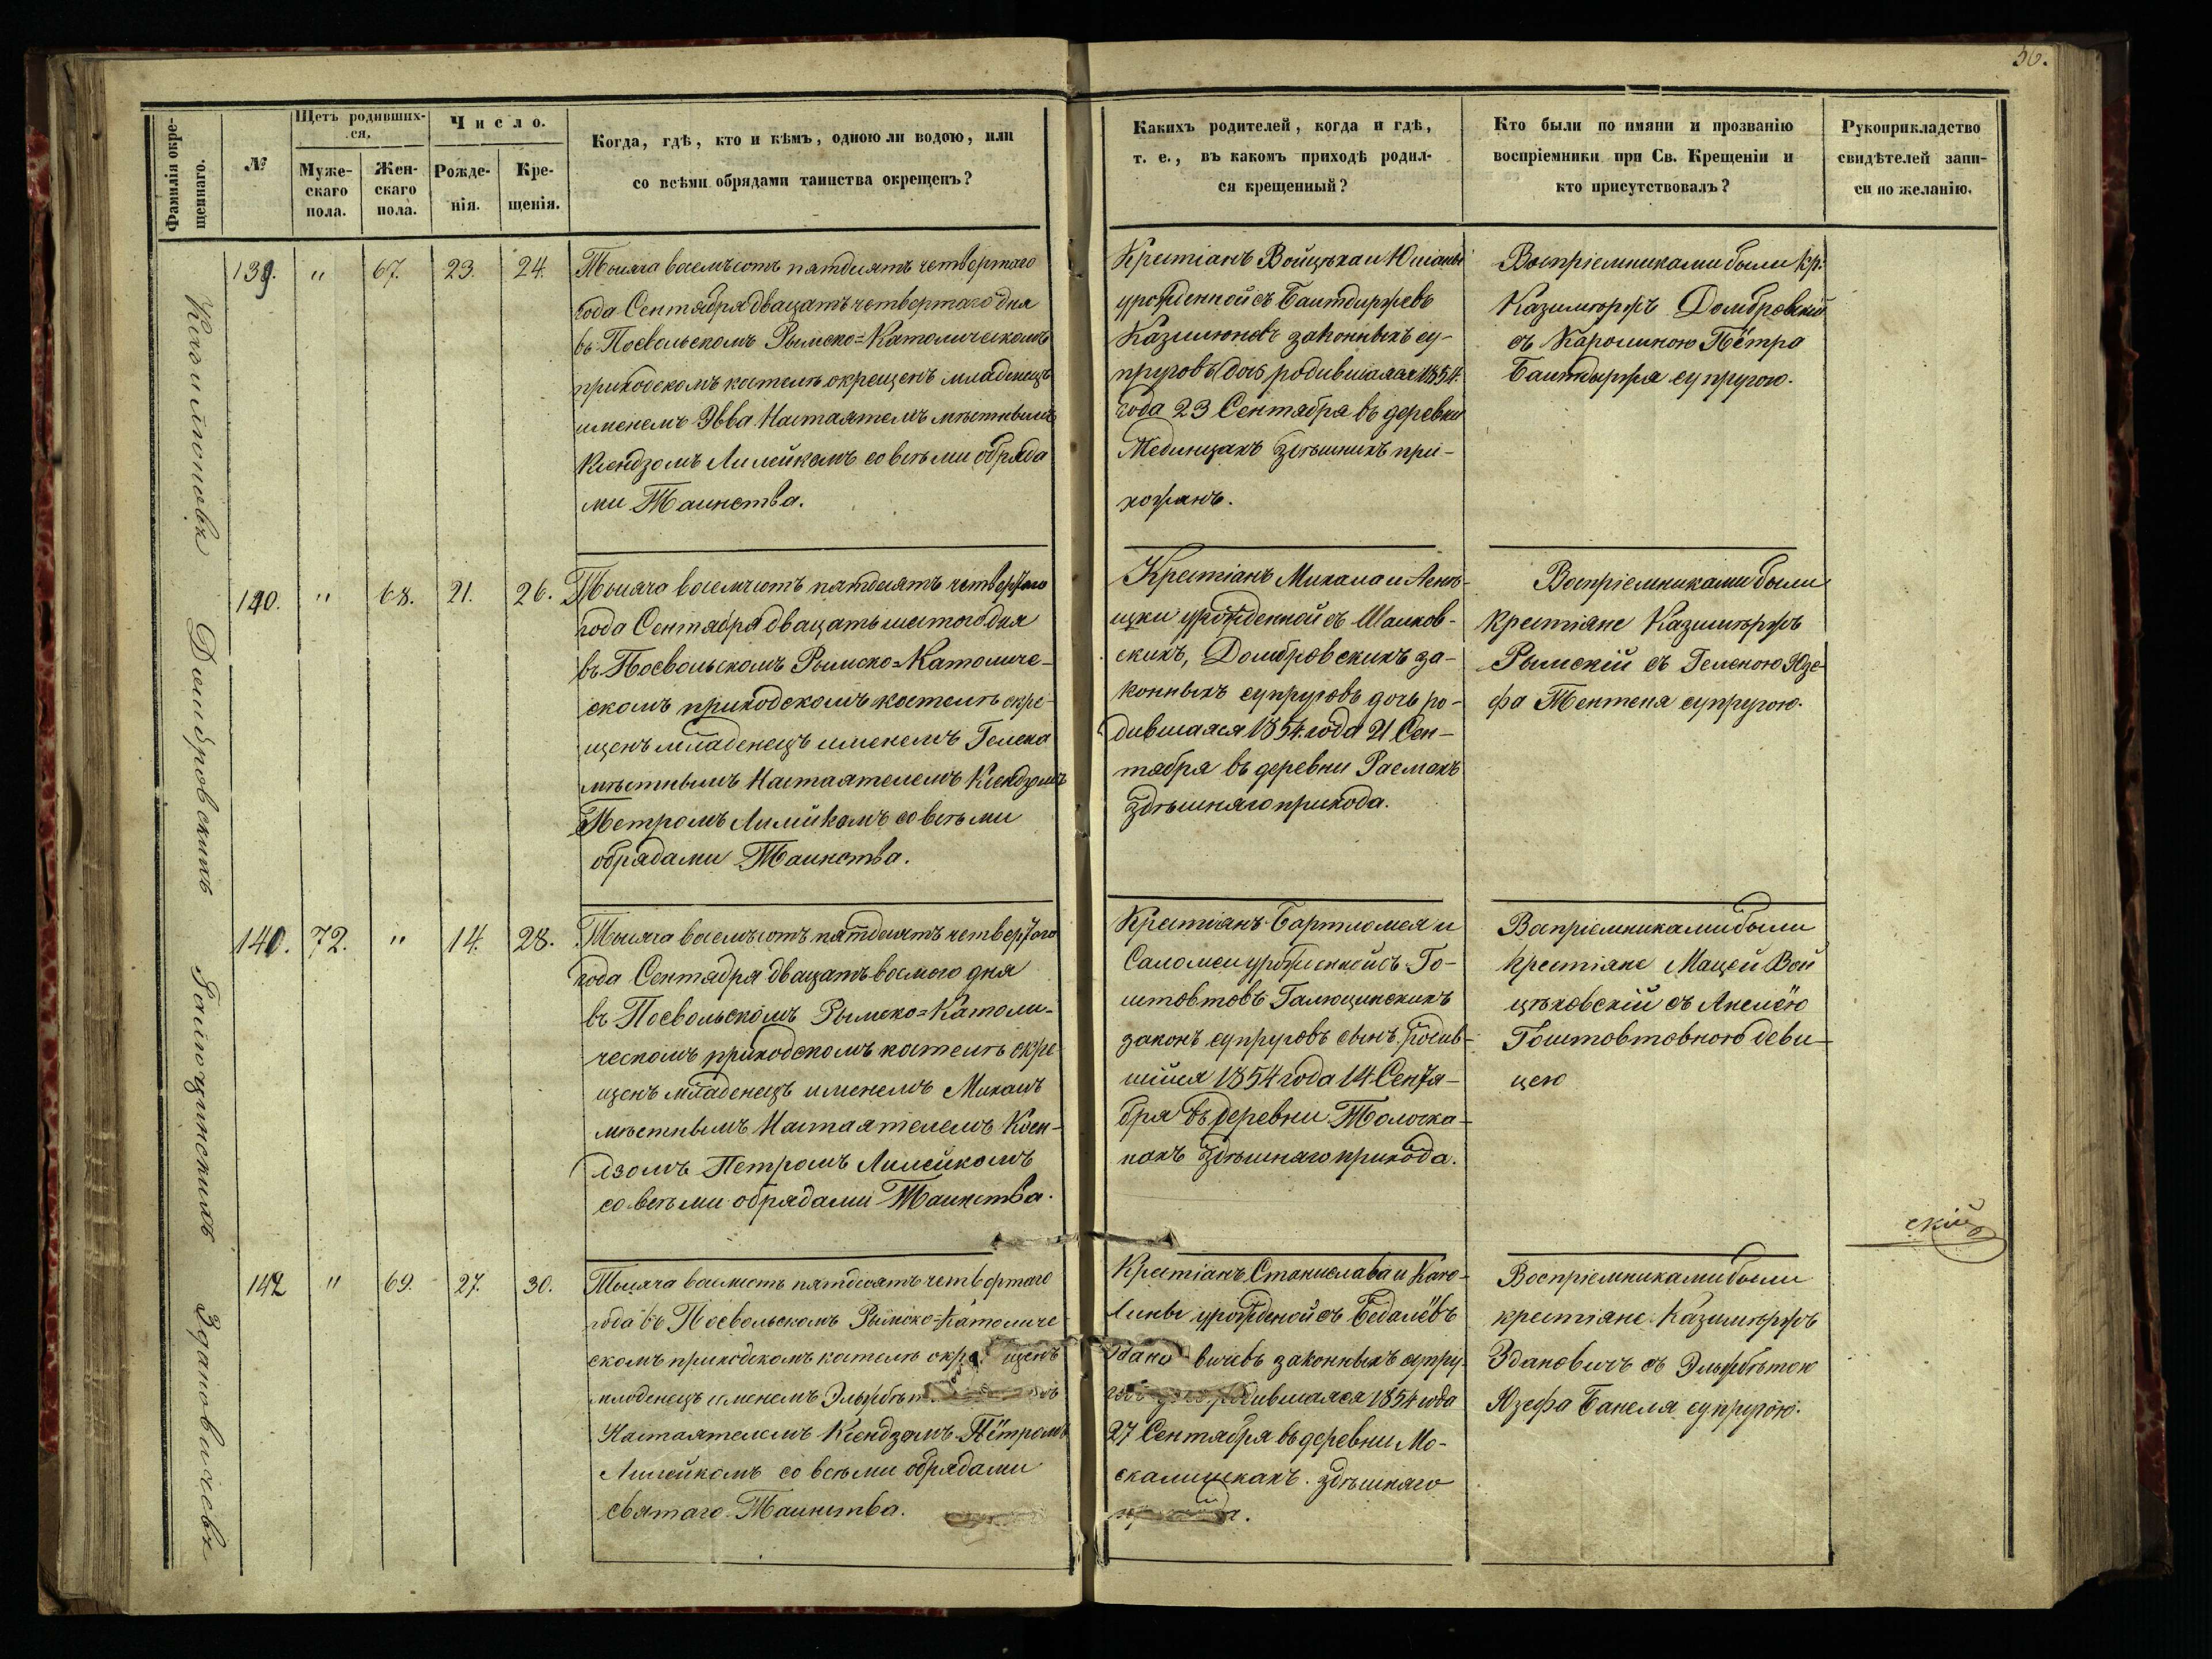 56.
Фамилія окре-
щеннаго.
№
Щетъ родивших-
ся,
Муже-
скаго
пола.
Жен-
скаго
пола.
Число.
Рожде-
нія.
Кре-
щенія.
Когда, гдѣ, кто и кѣмъ, одною ли водою, или
со всѣми обрядами таинства окрещенъ?
Какихъ родителей, когда и гдѣ,
т. е., въ какомъ приходѣ родил-
ся крещенный?
Кто были по имяни и прозванію
воспріемники при Св. Крещеніи и
кто присутствовалъ?
Рукоприкладство
свидѣтелей запи-
си по желанію.
Казимюновъ
139. " 67. 23. 24.
Тысяча восемьсотъ пятдесятъ четвертаго
года Сентября двацать четвертаго дня
въ Посвольскомъ Рымско=Католическомъ
приходскомъ костелѣ окрещенъ младенецъ
именемъ Эвва Настаятелемъ мѣстнымъ
Ксендзомъ Лилейкомъ со всѣми обряда
ми Таинства.
Крестіанъ Войцѣха и Юліанны
урожденной съ Баитдиржевъ
Казимюновъ законныхъ су-
пруговъ дочь родившаяся 1854.
года 23 Сентября въ деревни
Мединцахъ здѣшнихъ при-
хожанъ.
Воспріемниками были кр.
Казимюржъ Домбровскій
съ Каролиною Пётра
Баитдыржя супругою.
Домбровскихъ
140. " 68. 21. 26.
Тысяча восемьсотъ пятдесятъ четвертаго
года Сентября двацать шестого дня
въ Посвольскомъ Рымско=Католиче-
скомъ приходскомъ костелѣ окре-
щенъ младенецъ именемъ Гелена
мѣстнымъ Настаятелемъ Ксендзомъ
Петромъ Лилейкомъ со всѣми
обрядами Таинства.
Крестіанъ Михала и Агнѣ-
шки урожденной съ Шалков-
скихъ, Домбровскихъ за-
конныхъ супруговъ дочь ро-
дившаяся 1854. года 21 Сен-
тября въ деревни Расмахъ
здѣшняго прихода.
Воспріемниками были
Крестіяне Казимюржъ
Рымскій съ Геленою Юзе-
фа Тентеня супругою.
Галющинскихъ
140. 72. " 14. 28.
Тысяча восемьсотъ пятдесятъ четвертаго
года Сентября двацать восмого дня
въ Посвольскомъ Рымско=Католи-
ческомъ приходскомъ костелѣ окре
щенъ младенецъ именемъ Михалъ
мѣстнымъ Настаятелемъ Ксен-
дзомъ Петромъ Лилейкомъ
со всѣми обрядами Таинства.
Крестіянъ Бартломея и
Саломеи урожденной съ Го-
штовтовъ Галющинскихъ
законъ супруговъ сынъ родив-
шійся 1854 года 14 Сентя-
бря въ деревни Толочка-
нахъ здѣшняго прихода.
Воспріемниками были
крестіяне Мацей Вой
цѣховскій съ Анелёю
Гоштовтовною деви-
цею
скій
Здановичевъ
142 " 69. 27. 30.
Тысяча восемсотъ пятдесятъ четвертаго
года въ Посвольскомъ Рымско=Католиче
скомъ приходскомъ костелѣ окре щенъ
младенецъ именемъ Эльжбѣт
Настаятелемъ Ксендзомъ Пётромъ
Лилейкомъ со всѣми обрядами
святаго Таинства.
Крестіанъ Станислава и Каро-
лины урожденой съ Бедалёвъ
Здано вичевъ законныхъ супру-
родившаяся 1854 года
27 Сентября въ деревни Мо-
скалишкахъ здѣшняго
Воспріемниками были
крестіяне Казимюржъ
Здановичъ съ Эльжбѣтою
Юзефа Банеля супругою.